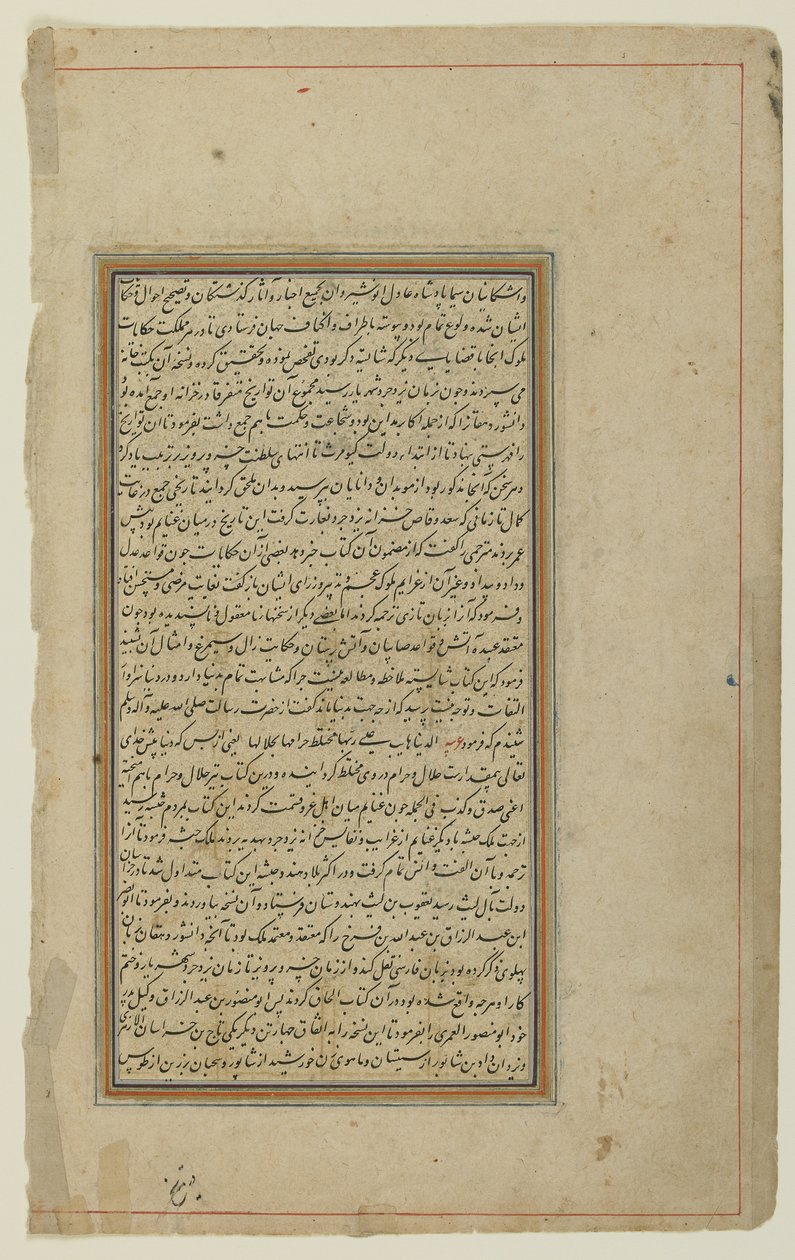 و اشکانیان سیما پادشاه عادل انوشیروان بجمیع اخبار و آثار گذشتگان و تصحیح احوال و حکایات
ایشان شده ولوع تمام بود و پیوسته باطراف و اکناف جهان فرستادی تا در هر مملکت حکایات
ملوک آنجا با قضایایی دیگر که شایسته ذکر بودی تفحص نموده و تحقیق کرده و نسخه آن بکتب خانه
می سپردند و چون زمان یزدجرد شهریار رسید مجموع آن تواریخ متفرقا در خزانه او جمع آمده بود
دانشور دهقانرا که از جمله اکابر مداین بود و شجاعت و حکمت با هم جمع داشت بفرمود تا آن تواریخ
را فهرستی بنهاد تا از ابتداء دولت کیومرث تا انتهای سلطنت خسرو پرویز بر ترتیب یاد کرد
و هر سخن که آنجا مذکور نبود از موبدان و دانایان بپرسید و بدان ملحق گردانید تاریخی جمع در غایت
کمال تا زمانی که سعد وقاص خزانه یزدجرد بغارت گرفت این تاریخ در میان غنایم بود پیش
عمر بردند مترجمی را گفت که از مضمون آن کتاب خبر دهد بعضی از آن حکایات چون قواعد عدل
و داد و بیداد و غیر آن از عزایم ملوک عجم و تدبیر وزرای ایشان باز گفت بغایت مرضی و مستحسن افتاد
و فرمود که آنرا بزبان تازی ترجمه کردند اما بعضی دیگر از سخنها نامعقول و ناپسندیده بود چون
معتقد عبده آتش و قواعد صابیان و آتش پرستان و حکایت زال و سیمرغ و امثال آن بشنید
فرمود که این کتاب شایسته ملاحظه و مطالعه نیست چرا که مشابهت تمام بدنیا دارد و در دنیا سزاوار
التفات و توجه نیست پرسید که از چه جهت بدنیا ماند گفت از حضرت رسالت صلی الله علیه و آله وسلم
شنیدم که فرمود عربیه الدنیا هانت علی ربها فخلط حرامها بحلالها یعنی از بس که دنیا پیش خدای
تعالی بیمقدارست حلال و حرام در وی مختلط گردانیده و درین کتاب نیز حلال و حرام با هم آمیخته
اعنی صدق و کذب فی الجمله چون غنایم میان اهل عرب قسمت کردند این کتاب بمردم حبشه رسید
از جهت ملک حبشه با دیگر غنایم از غرایب و نفایس خزانه یزدجرد بهدیه بردند ملک حبشه فرمود تا آنرا
ترجمه و با آن الفت و انس تمام گرفت و در اکثر بلاد هند و حبشه این کتاب متداول شد تا در خراسان
دولت بآل لیث رسید یعقوب بن لیث بهندوستان فرستاد و آن نسخه بیاوردند و بفرمود تا ابومنصور
ابن عبد الرزاق بن عبد الله بن فرخ را که معتقد و معتمد ملک بود تا آنچه دانشور دهقان بزبان
پهلوی ذکر کرده بود بزبان فارسی نقل کند و از زمان خسرو پرویز تا زمان یزدجرد شهریار و ختم
کار او هرچه واقع شده بود در آن کتاب الحاق کردند پس ابومنصور بن عبد الرزاق وکیل پدر
خود ابومنصور المعمری را بفرمود تا این نسخه را به اتفاق چهار تن دیگر یکی تاج بن خراسان از هری
و یزدان داد بن شاپور از سیستان و ماهوی بن خورشید از شاپور و سحبان برزین از طوس